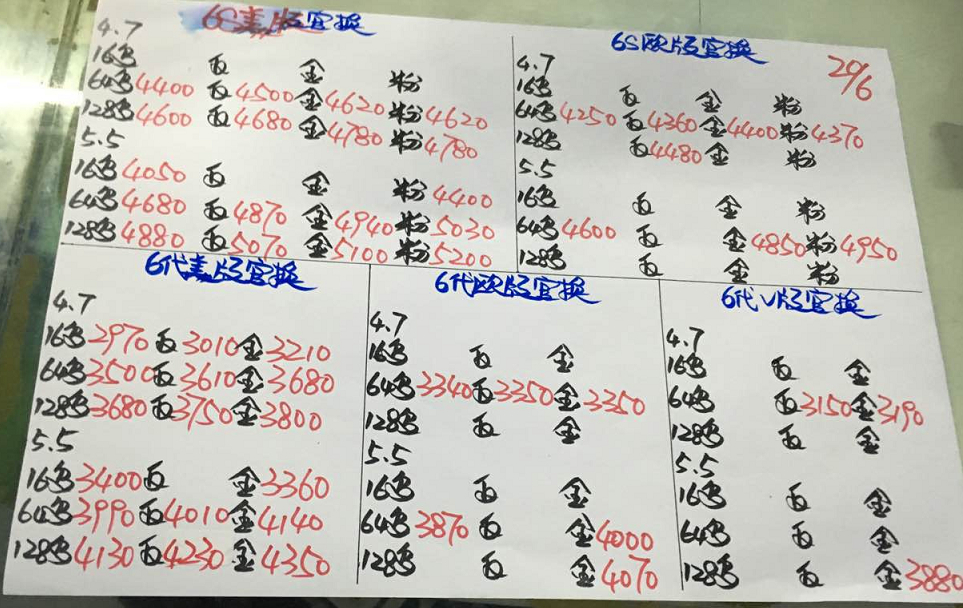 6S美版官换
4.7
16鸟 白 金 粉
64鸟4400 白4500金4620粉4620
128鸟4600 白4680 金4780粉4780
5.5
16鸟4050 白 金 粉4400
64鸟4680 白4870 金4940粉5030
128鸟4880 白5070 金5100粉5200
6S欧版官换
29/6
4.7
16鸟 白 金 粉
64鸟4250白4360金4400粉4370
128鸟 白4480金 粉
5.5
16鸟 白 金 粉
64鸟4600 白 金4850粉4950
128鸟 白 金 粉
6代美版官换
4.7
16鸟2970白3010金3210
64鸟3500白3610金3680
128鸟3680白3750金3800
5.5
16鸟3400白 金3360
64鸟3990白4010金4140
128鸟4130白4230金4350
6代欧版官换
4.7
16鸟 白 金
64鸟3340白3350金3350
128鸟 白 金
5.5
16鸟 白 金
64鸟3870白 金4000
128鸟 白 金4070
6代V版官换
4.7
16鸟 白 金
64鸟 白3150金3190
128鸟 白 金
5.5
16鸟 白 金
64鸟 白 金
128鸟 白 金3880